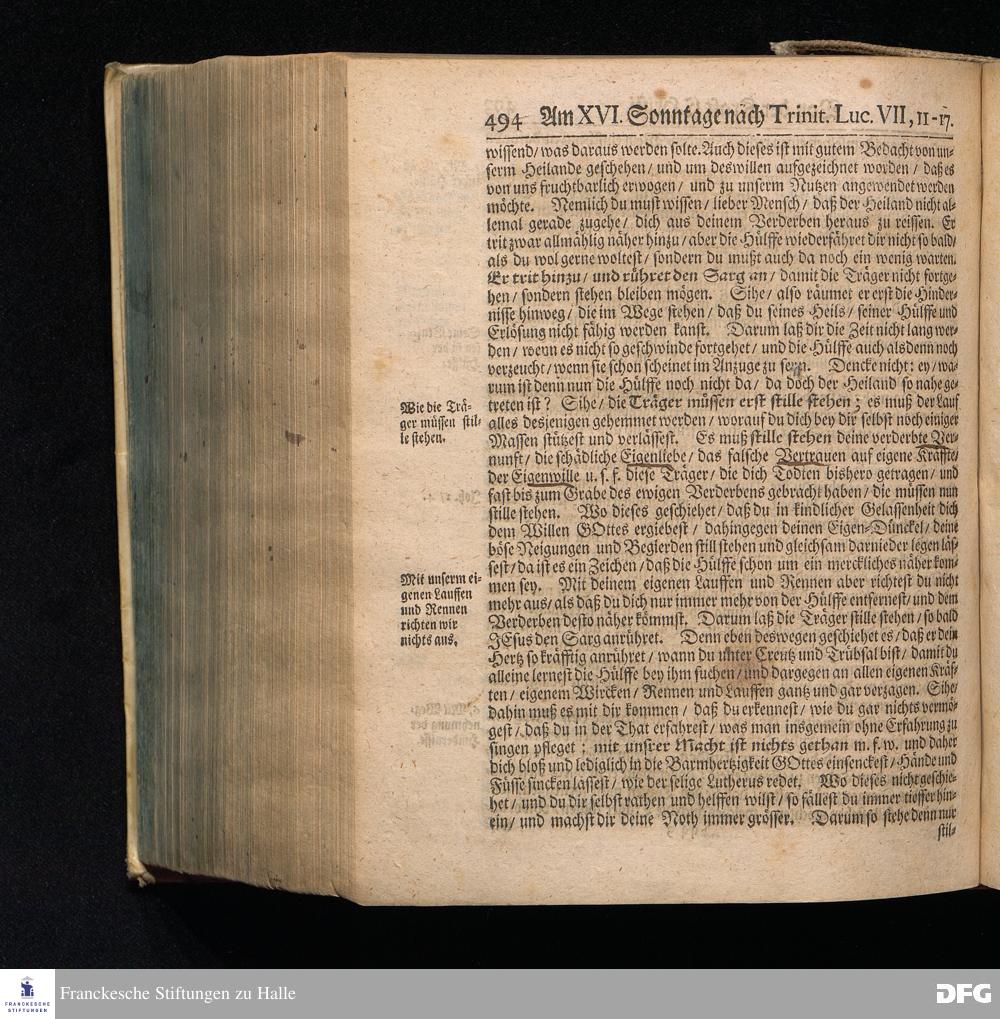 494 Am XVI. Sonntage nach Trinit. Luc. VII, 11-17.
wissend/ was daraus werden solte. Auch dieses ist mit gutem Bedacht von un-
serm Heilande geschehen/ und um deswillen aufgezeichnet worden/ daß es
von uns fruchtbarlich erwogen/ und zu unserm Nutzen angewendet werden
möchte. Nemlich du must wissen/ lieber Mensch/ daß der Heiland nicht al-
lemal gerade zugehe/ dich aus deinem Verderben heraus zu reissen. Er
trit zwar allmählig näher hinzu/ aber die Hülffe wiederfähret dir nicht so bald/
als du wol gerne woltest/ sondern du mußt auch da noch ein wenig warten.
Er trit hinzu/ und rühret den Sarg an/ damit die Träger nicht fortge-
hen/ sondern stehen bleiben mögen. Sihe/ also räumet er erst die Hinder-
nisse hinweg/ die im Wege stehen/ daß du seines Heils/ seiner Hülffe und
Erlösung nicht fähig werden kanst. Darum laß dir die Zeit nicht lang wer-
den/ wenn es nicht so geschwinde fortgehet/ und die Hülffe auch alsdenn noch
verzeucht/ wenn sie schon scheinet im Anzuge zu seyn. Dencke nicht: ey/ wa-
rum ist denn nun die Hülffe noch nicht da/ da doch der Heiland so nahe ge-
treten ist? Sihe/ die Träger müssen erst stille stehen; es muß der Lauf
alles desjenigen gehemmet werden/ worauf du dich bey dir selbst noch einiger
Massen stützest und verlässest. Es muß stille stehen deine verderbte Ver-
nunft/ die schädliche Eigenliebe/ das falsche Vertrauen auf eigene Kräffte/
der Eigenwille u. s. f. diese Träger/ die dich Todten bishero getragen/ und
fast bis zum Grabe des ewigen Verderbens gebracht haben/ die müssen nun
stille stehen. Wo dieses geschiehet/ daß du in kindlicher Gelassenheit dich
dem Willen GOttes ergiebest/ dahingegen deinen Eigen-Dünckel/ deine
böse Neigungen und Begierden still stehen und gleichsam darnieder legen läs-
sest/ da ist es ein Zeichen/ daß die Hülffe schon um ein merckliches näher kom-
men sey. Mit deinem eigenen Lauffen und Rennen aber richtest du nicht
mehr aus/ als daß du dich nur immer mehr von der Hülffe entfernest/ und dem
Verderben desto näher kömmst. Darum laß die Träger stille stehen/ so bald
JEsus den Sarg anrühret. Denn eben deswegen geschiehet es/ daß er dein
Hertz so kräfftig anrühret/ wann du unter Creutz und Trübsal bist/ damit du
alleine lernest die Hülffe bey ihm suchen/ und dargegen an allen eigenen Kräf-
ten/ eigenem Wircken/ Rennen und Lauffen gantz und gar verzagen. Sihe/
dahin muß es mit dir kommen/ daß du erkennest/ wie du gar nichts vermö-
gest/ daß du in der That erfahrest/ was man insgemein ohne Erfahrung zu
singen pfleget: mit unsrer Macht ist nichts gethan m. f. w. und daher
dich bloß und lediglich in die Barmhertzigkeit GOttes einsenckest/ Hände und
Füsse sincken lassest/ wie der selige Lutherus redet. Wo dieses nicht geschie-
het/ und du dir selbst rathen und helffen wilst/ so fällest du immer tieffer hin-
ein/ und machst dir deine Noth immer grösser. Darum so stehe denn nur
stil-
Wie die Trä-
ger müssen stil-
le stehen.
Mit unserm ei-
genen Lauffen
und Rennen
richten wir
nichts aus.
FRANCKESCHE
STIFTUNGEN
Franckesche Stiftungen zu Halle
DFG